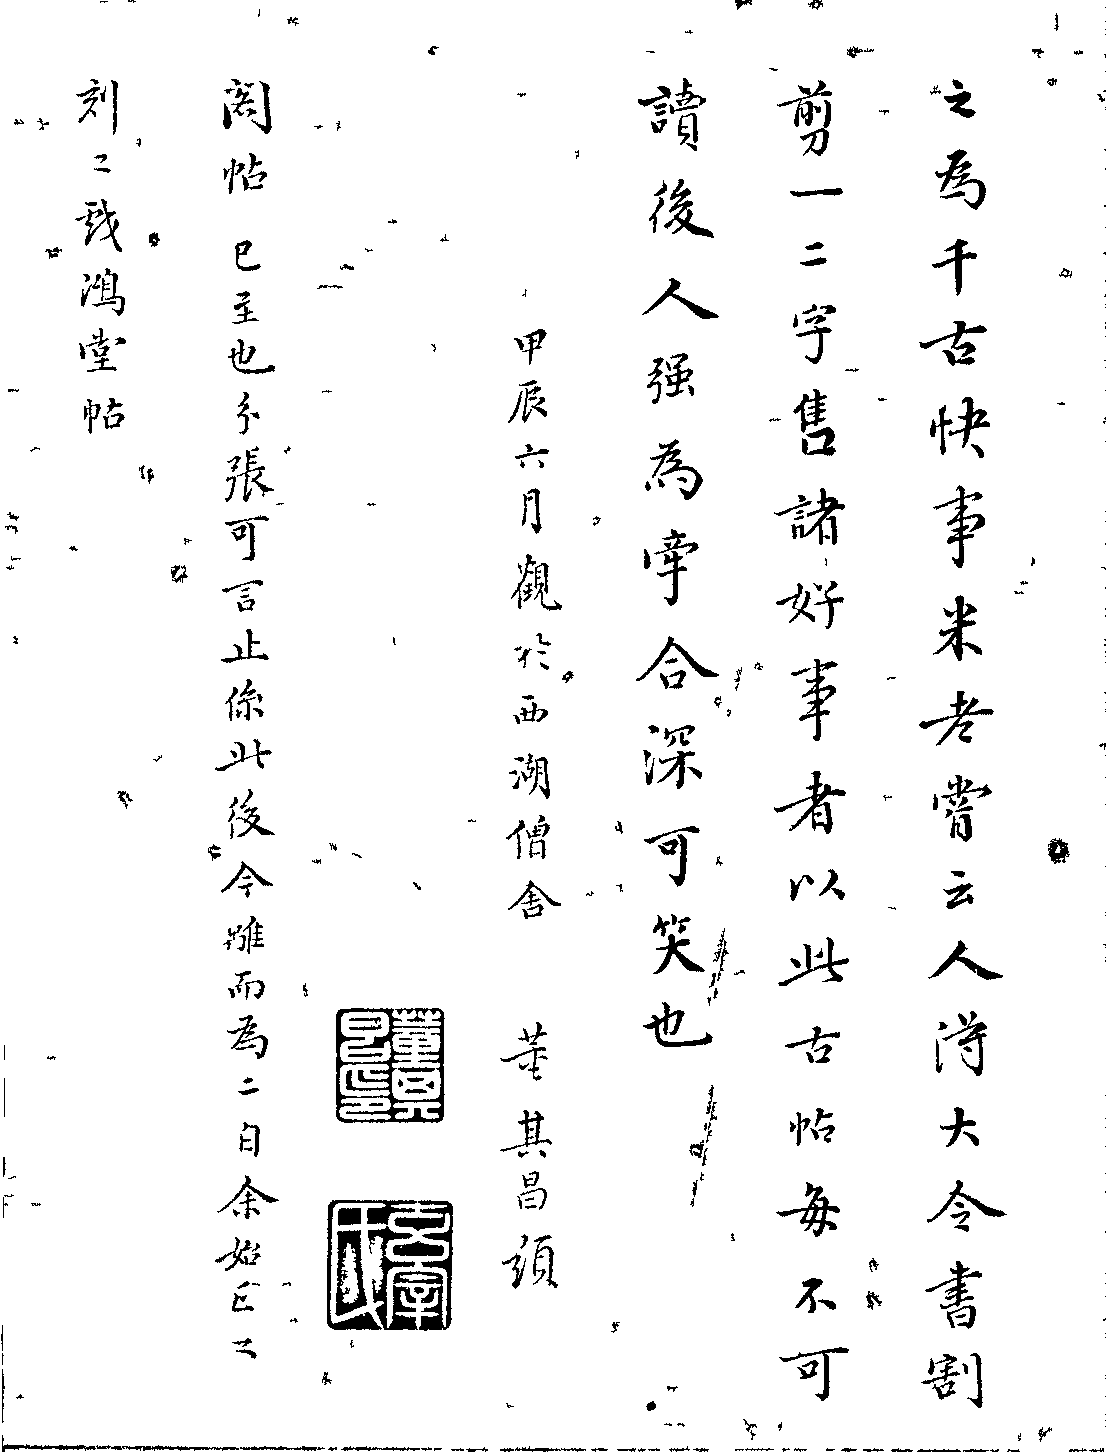 之為千古快事米老嘗云人得大令書割
剪一二字售諸好事者以此古帖每不可
讀後人强為牽合深可笑也
甲辰六月觀於西湖僧舍 董其昌題
閣帖已至也分張可言止係此後今離而為二自余始正之
刻之戲鴻堂帖